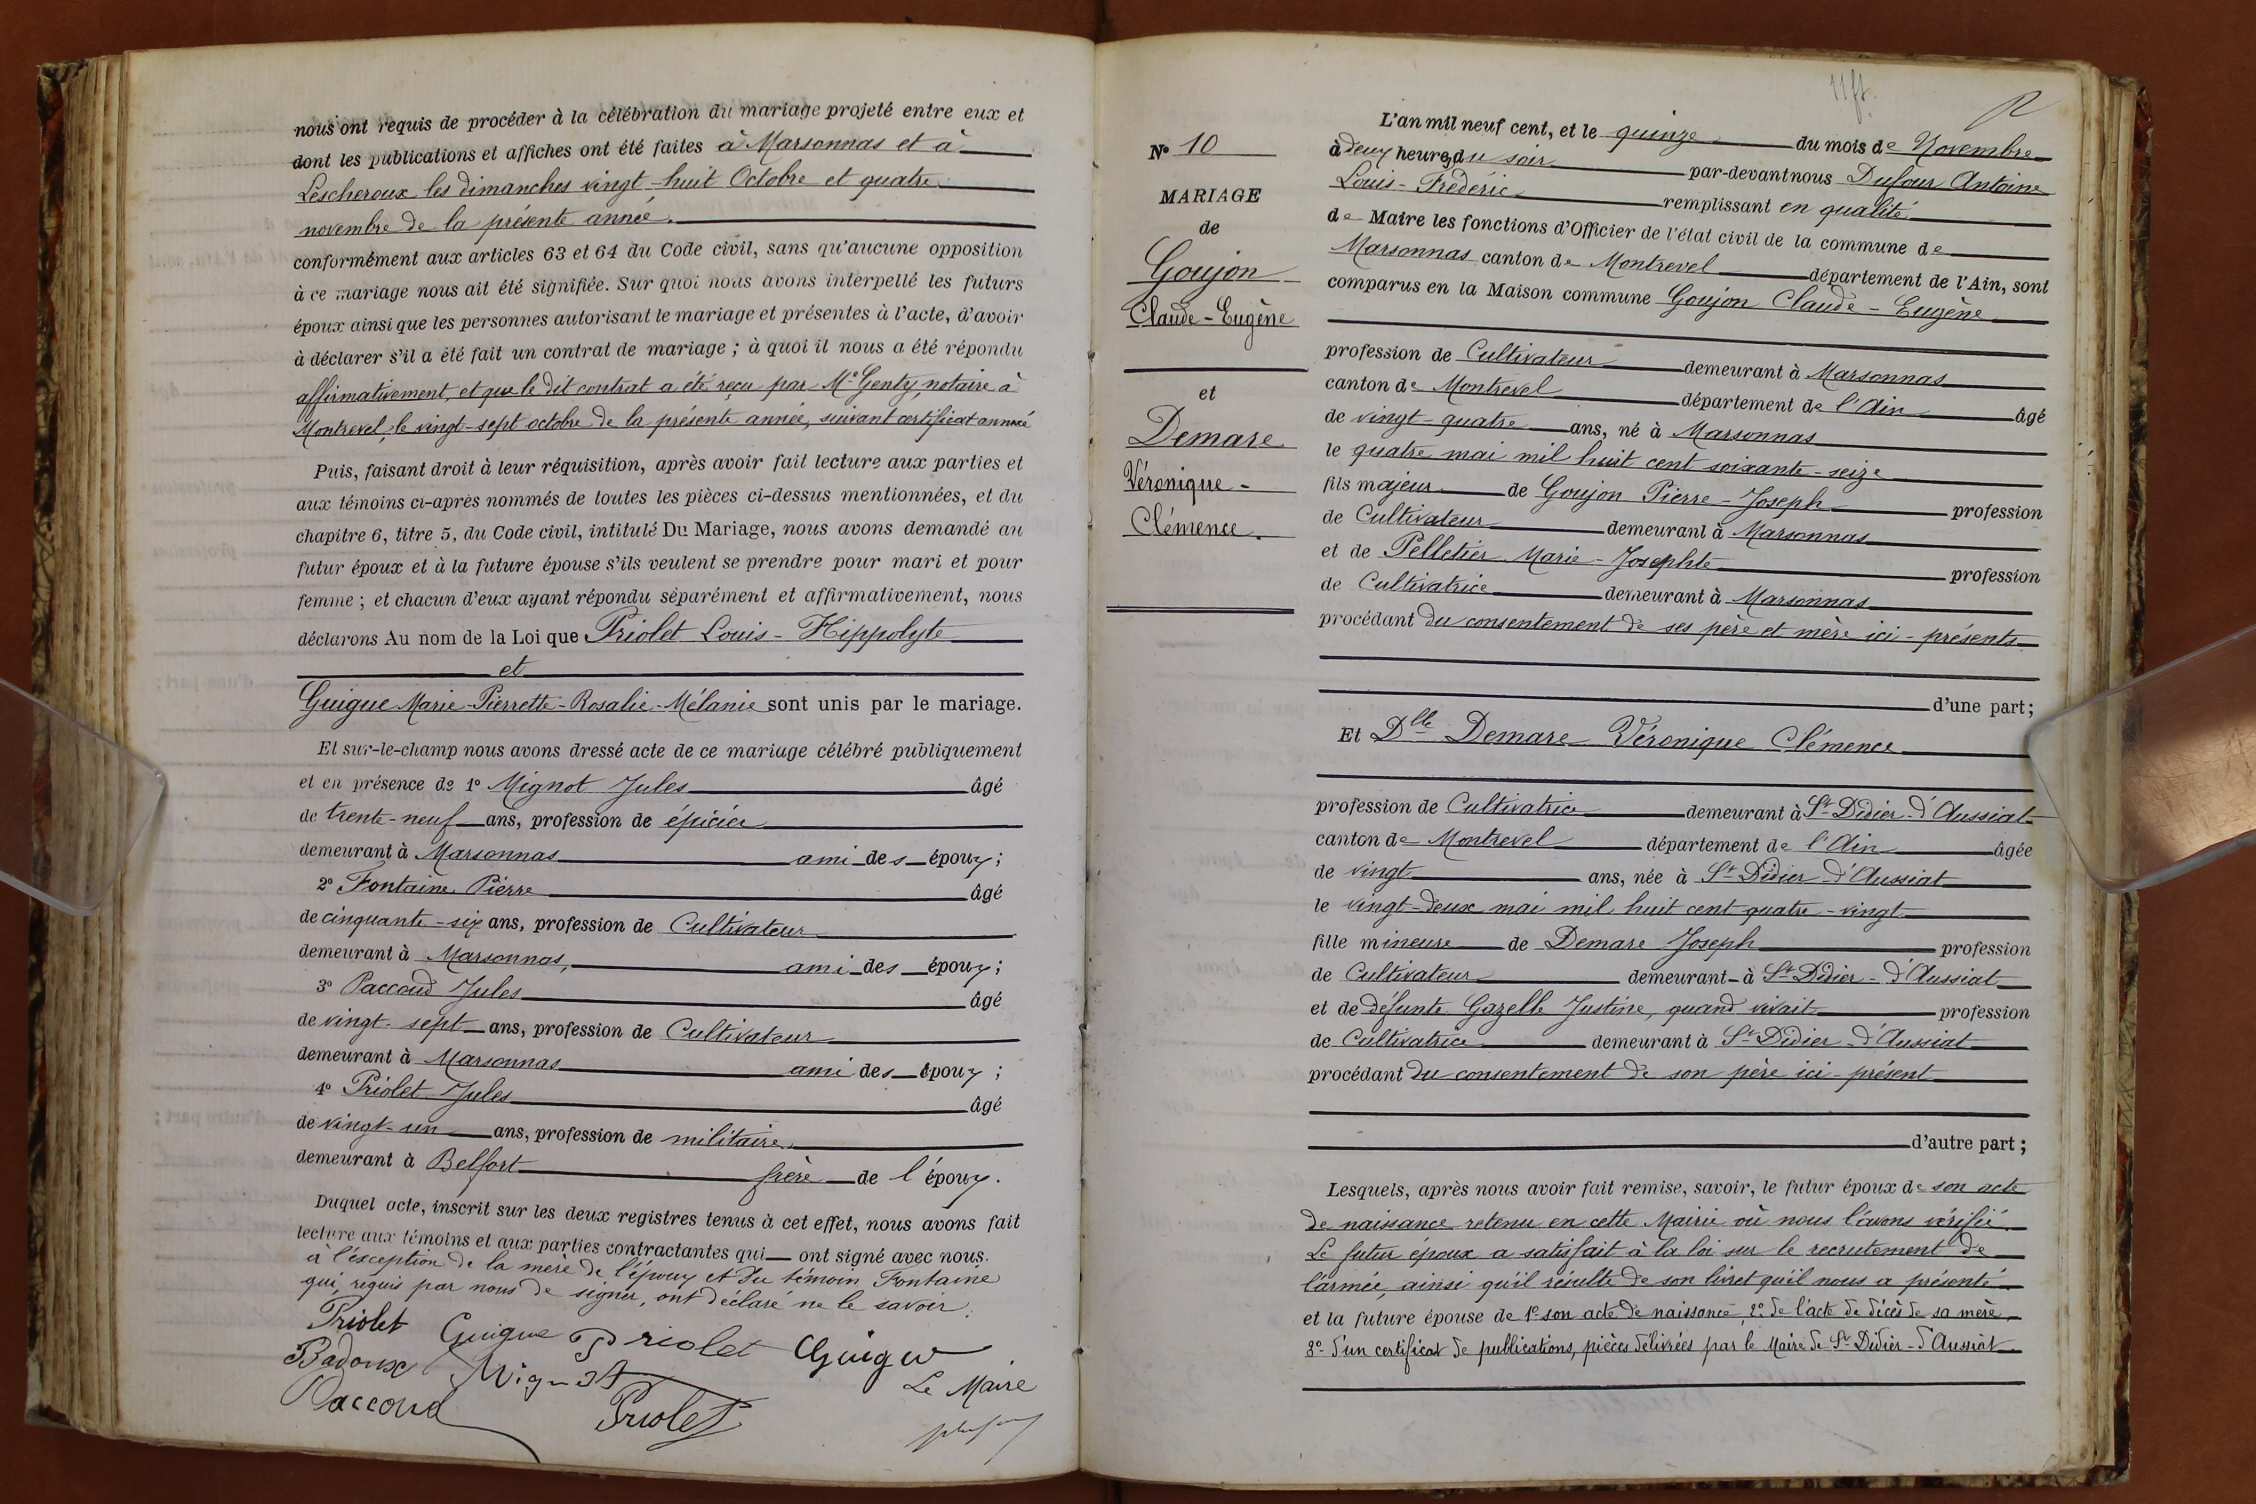 nous ont requis de procéder à la célébration du mariage projeté entre eux et
dont les publications et affiches ont été faites à Marsonnas et à
Lescheroux les dimanches vingt-huit Octobre et quatre
novembre de la présente année.
conformément aux articles 63 et 64 du Code civil, sans qu'aucune opposition
à ce mariage nous ait été signifiée. Sur quoi nous avons interpellé les futurs
époux ainsi que les personnes autorisant le mariage et présentes à l'acte, d'avoir
à déclarer s'il a été fait un contrat de mariage ; à quoi il nous a été répondu
affirmativement, et que le dit contrat a été reçu par Me Genty, notaire à
Montrevel, le vingt-sept octobre de la présente année, suivant certificat annexé
Puis, faisant droit à leur réquisition, après avoir fait lecture aux parties et
aux témoins ci-après nommés de toutes les pièces ci-dessus mentionnées, et du
chapitre 6, titre 5, du Code civil, intitulé Du Mariage, nous avons demandé au
futur époux et à la future épouse s'ils veulent se prendre pour mari et pour
femme ; et chacun d'eux ayant répondu séparément et affirmativement, nous
déclarons Au nom de la Loi que Priolet Louis-Hippolyte
et
Guigue Marie-Pierrette-Rosalie-Mélanie sont unis par le mariage.
Et sur-le-champ nous avons dressé acte de ce mariage célébré publiquement
et en présence de 1° Mignot Jules âgé
de trente-neuf ans, profession de épicier
demeurant à Marsonnas ami des époux ;
2° Fontaine Pierre âgé
de cinquante-six ans, profession de Cultivateur
demeurant à Marsonnas, ami des époux ;
3° Paccoud Jules âgé
de vingt-sept ans, profession de Cultivateur
demeurant à Marsonnas ami des époux ;
4° Priolet Jules âgé
de vingt-un ans, profession de militaire
demeurant à Belfort frère de l'époux.
Duquel acte, inscrit sur les deux registres tenus à cet effet, nous avons fait
lecture aux témoins et aux parties contractantes qui ont signé avec nous.
à l'exception de la mère de l'époux et du témoin Fontaine
qui, requis par nous de signer, ont déclaré ne le savoir.
Priolet Guigue Priolet Guigue
Badoux Mignot Le Maire
Paccoud Priolet
11 ft.
L'an mil neuf cent, et le quinze du mois de Novembre
à deux heures du soir par-devant nous Dufour Antoine
Louis-Frédéric remplissant en qualité
de Maire les fonctions d'Officier de l'état civil de la commune de
Marsonnas canton de Montrevel département de l'Ain, sont
comparus en la Maison commune Goujon Claude-Eugène
profession de Cultivateur demeurant à Marsonnas
canton de Montrevel département de l'Ain âgé
de vingt-quatre ans, né à Marsonnas
le quatre mai mil huit cent soixante-seize
fils majeur de Goujon Pierre-Joseph profession
de Cultivateur demeurant à Marsonnas
et de Pelletier Marie-Josephte profession
de Cultivatrice demeurant à Marsonnas
procédant du consentement de ses père et mère ici-présents
d'une part ;
N° 10
MARIAGE
de
Goujon
Claude-Eugène
et
Demare
Véronique-
Clémence.
Et Dlle Demare Véronique Clémence
profession de Cultivatrice demeurant à St-Didier-d'Aussiat
canton de Montrevel département de l'Ain âgée
de vingt ans, née à St-Didier-d'Aussiat
le vingt-deux mai mil huit cent quatre-vingt
fille mineure de Demare Joseph profession
de Cultivateur demeurant à St-Didier-d'Aussiat
et de défunte Gazelle Justine, quand vivait profession
de Cultivatrice demeurant à St-Didier-d'Aussiat
procédant du consentement de son père ici-présent
d'autre part ;
Lesquels, après nous avoir fait remise, savoir, le futur époux de son acte
de naissance retenu en cette Mairie où nous l'avons vérifié.
Le futur époux a satisfait à la loi sur le recrutement de
l'armée, ainsi qu'il résulte de son livret qu'il nous a présenté
et la future épouse de 1° son acte de naissance, 2° de l'acte de décès de sa mère
3° d'un certificat de publications, pièces délivrées par le Maire de St-Didier-d'Aussiat